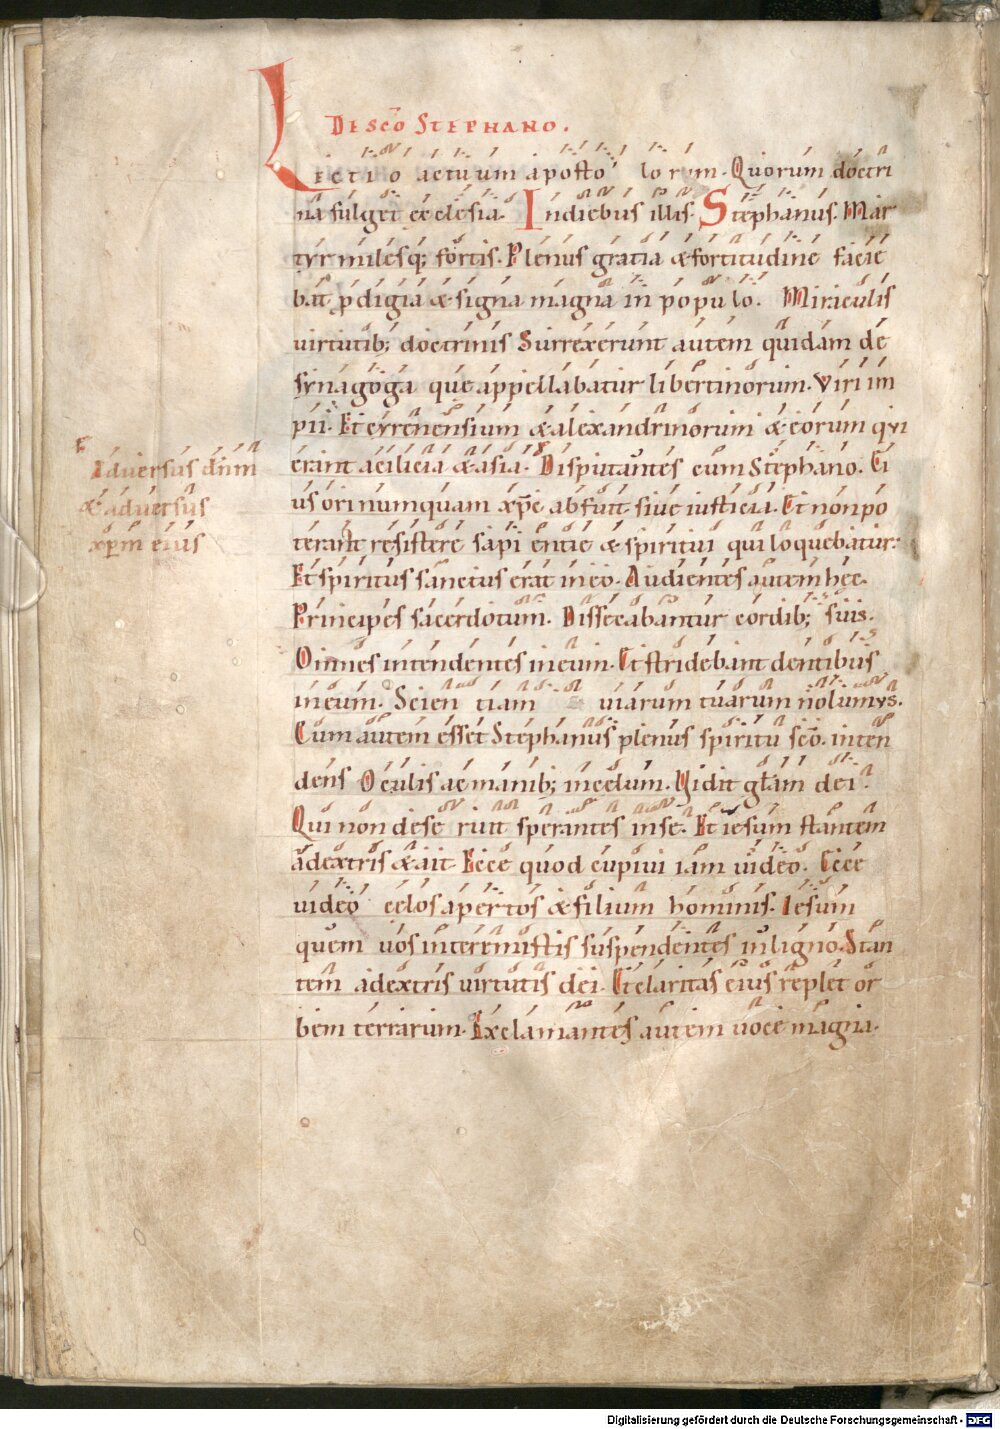 DE SCO STEPHANO.
Lectio actuum aposto lorum. Quorum doctri
na fulget ecclesia. In diebus illis. Stephanus. Mar
tyr milesq; fortis. Plenus gratia & fortitudine facie
bat p̄digia & signa magna in populo. Miraculis
virtutib; doctrinis Surrexerunt autem quidam de
synagoga que appellabatur libertinorum. Viri im
pii. Et cyrenensium & alexandrinorum & eorum qui
erant a cilicia & asia. Disputantes cum Stephano. Ei
us ori numquam xp̄c abfuit sive iusticia. Et non po
terant resistere sapi entie & spiritui qui loquebatur.
Et spiritus sanctus erat in eo. Audientes autem hec.
Principes sacerdotum. Dissecabantur cordib; suis.
Omnes intendentes in eum. Et stridebant dentibus
in eum. Scien tiam viarum tuarum nolumus.
Cum autem esset Stephanus plenus spiritu sco. inten
dens Oculis ac manib; in celum. Vidit gl̄am dei.
Qui non dese ruit sperantes in se. Et iesum stantem
a dextris & ait. Ecce quod cupivi iam video. Ecce
video celos apertos & filium hominis. Iesum
quem vos interemistis suspendentes in ligno. Stan
tem a dextris virtutis dei. Et claritas eius replet or
bem terrarum. Exclamantes autem voce magna.
Adversus dn̄m
& adversus
xp̄m eius
Digitalisierung gefördert durch die Deutsche Forschungsgemeinschaft - DFG